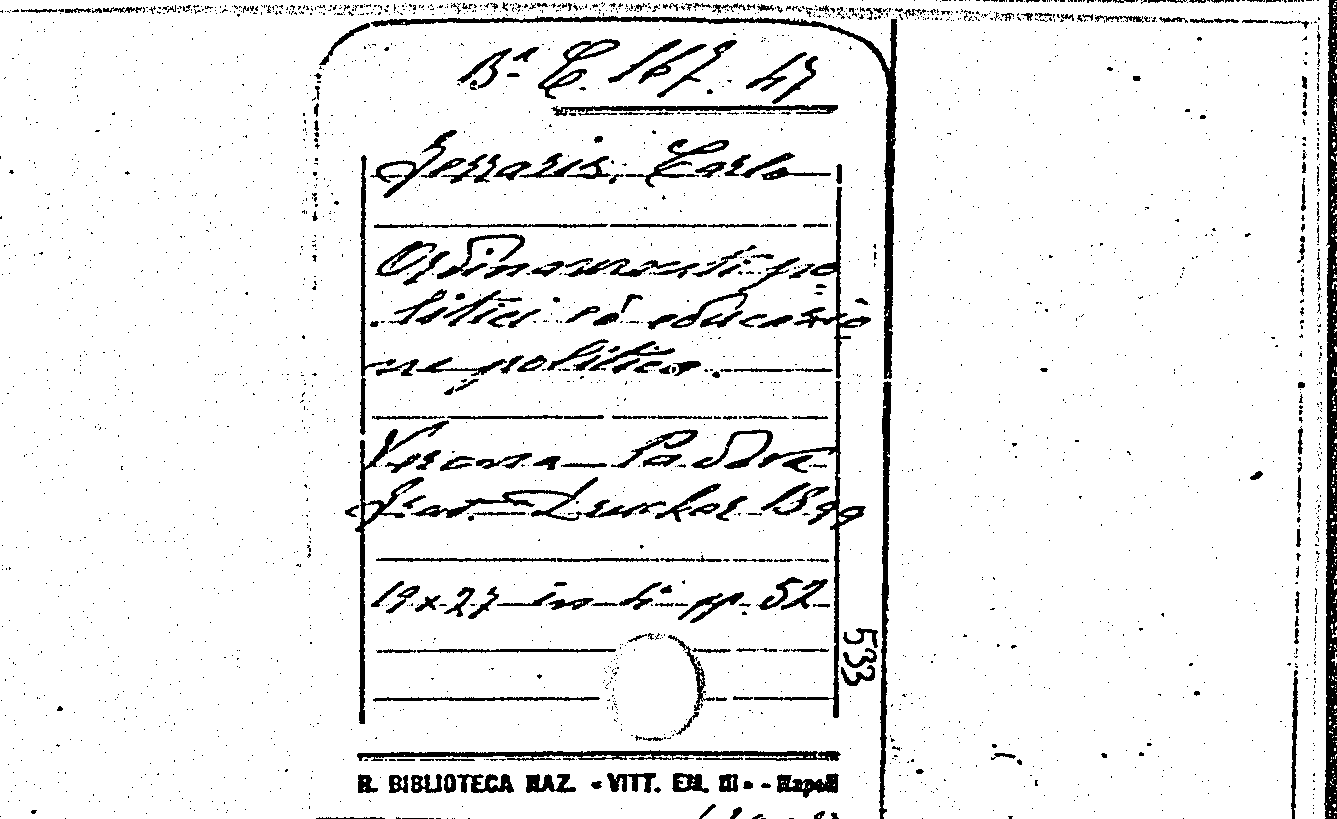 Bª C. 167. 47
Ferraris, Carlo
Ordinamenti po
litici ed educazio
ne politica.
Verona-Padova
Frat. Drucker 1899
19x27 in 4° pp. 52
533
R. BIBLIOTECA NAZ. «VITT. EM. III» - Napoli